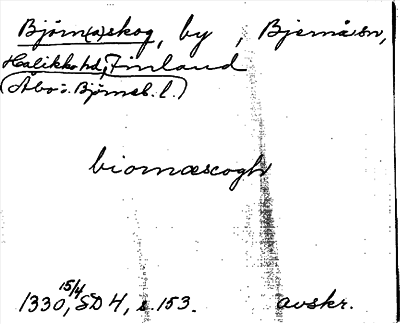 Björn(a)skog, by, Bjernå sn,
Halikko hd, Finland
(Åbo o. Björneb. l.)
biornæscogh
1330 15/4, SD 4, s. 153. avskr.